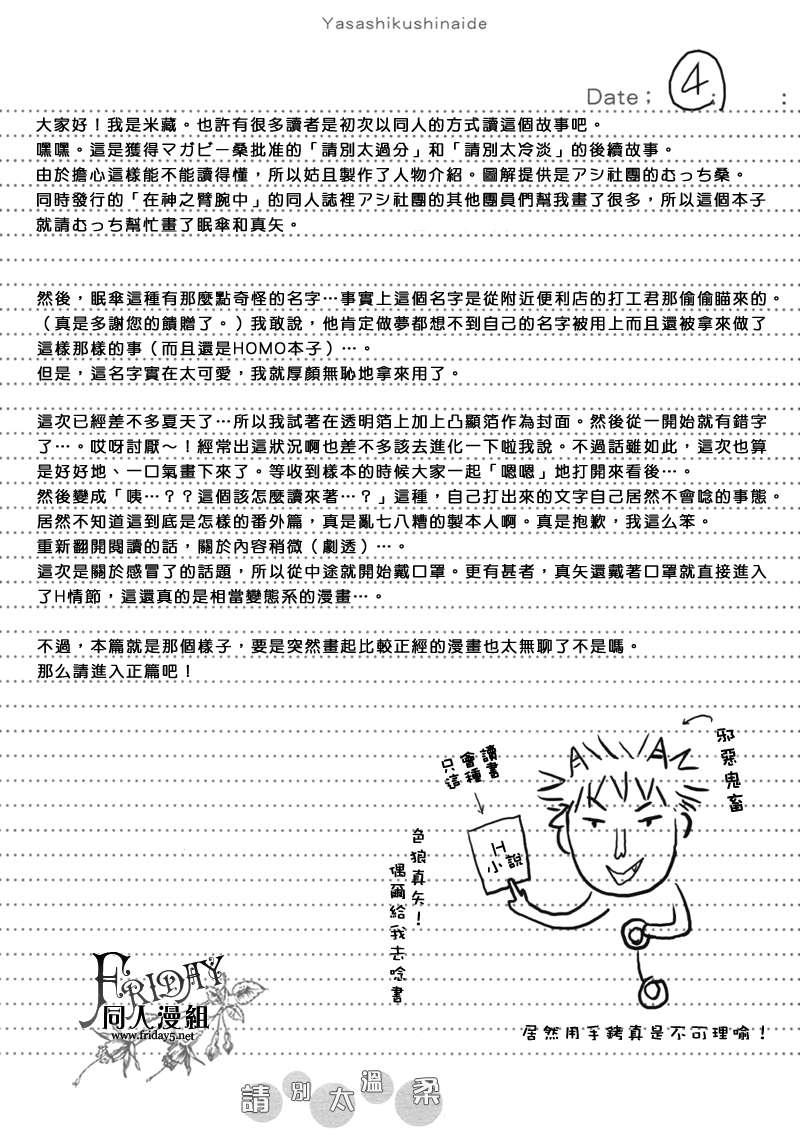 Yasashikushinaide
Date； ④ ： ：
大家好！我是米藏。也許有很多讀者是初次以同人的方式讀這個故事吧。
嘿嘿。這是獲得マガビー桑批准的「請別太過分」和「請別太冷淡」的後續故事。
由於擔心這樣能不能讀得懂，所以姑且製作了人物介紹。圖解提供是アシ社團的むっち桑。
同時發行的「在神之臂腕中」的同人誌裡アシ社團的其他團員們幫我畫了很多，所以這個本子
就請むっち幫忙畫了眠傘和真矢。
然後，眠傘這種有那麼點奇怪的名字…事實上這個名字是從附近便利店的打工君那偷偷瞄來的。
（真是多謝您的饋贈了。）我敢說，他肯定做夢都想不到自己的名字被用上而且還被拿來做了
這樣那樣的事（而且還是HOMO本子）…。
但是，這名字實在太可愛，我就厚顏無恥地拿來用了。
這次已經差不多夏天了…所以我試著在透明箔上加上凸顯箔作為封面。然後從一開始就有錯字
了…。哎呀討厭～！經常出這狀況啊也差不多該去進化一下啦我說。不過話雖如此，這次也算
是好好地、一口氣畫下來了。等收到樣本的時候大家一起「嗯嗯」地打開來看後…。
然後變成「咦…？？這個該怎麼讀來著…？」這種，自己打出來的文字自己居然不會唸的事態。
居然不知道這到底是怎樣的番外篇，真是亂七八糟的製本人啊。真是抱歉，我這么笨。
重新翻開閱讀的話，關於內容稍微（劇透）…。
這次是關於感冒了的話題，所以從中途就開始戴口罩。更有甚者，真矢還戴著口罩就直接進入
了H情節，這還真的是相當變態系的漫畫…。
不過，本篇就是那個樣子，要是突然畫起比較正經的漫畫也太無聊了不是嗎。
那么請進入正篇吧！
邪惡鬼畜
只會讀
這種書
H
小說
色狼真矢！
偶爾給我去唸書
居然用手銬真是不可理喻！
FRIDAY
同人漫組
www.friday5.net
請別太溫柔